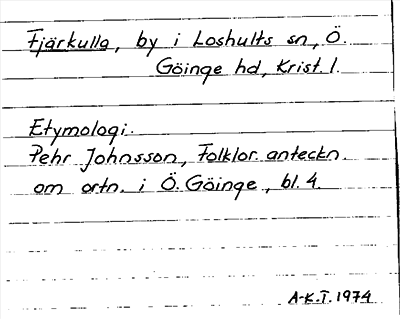 Fjärkulla, by i Loshults sn, Ö.
Göinge hd, Krist. l.
Etymologi.
Pehr Johnsson, Folklor. anteckn.
om ortn. i Ö. Göinge, bl. 4.
A-K.T. 1974